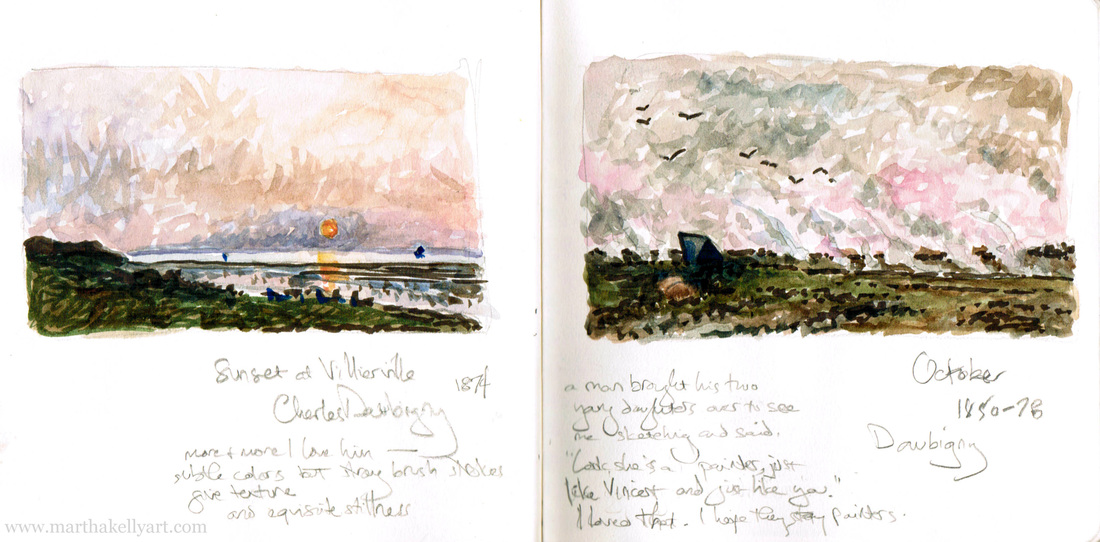 Sunset at Villierville
1874
Charles Daubigny
more + more I love him —
subtle colors but strong brush strokes
give texture
and exquisite stillness
www.marthakellyart.com
October
1850-78
Daubigny
a man brought his two
young daughters over to see
me sketching and said,
"Look, she's a painter, just
like Vincent and just like you."
I loved that. I hope they stay painters.